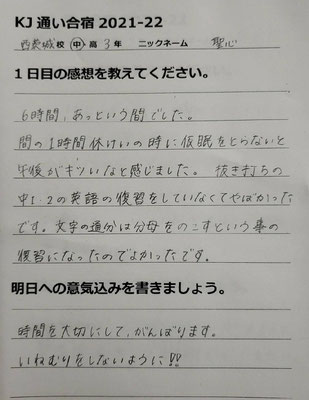 KJ 通い合宿 2021-22
西茨城校 中 高 3年 ニックネーム 聖心
1日目の感想を教えてください。
6時間、あっという間でした。
間の1時間休けいの時に仮眠をとらないと
午後がキツいなと感じました。 抜き打ちの
中1・2の英語の復習をしていなくてやばかった
です。文字の通分は分母をのこすという事の
復習になったのでよかったです。
明日への意気込みを書きましょう。
時間を大切にして、がんばります。
いねむりをしないように!!